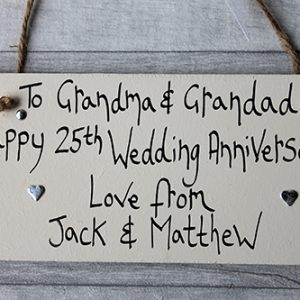 To Grandma & Grandad
appy 25th Wedding Anniversa
Love from
Jack & Matthew